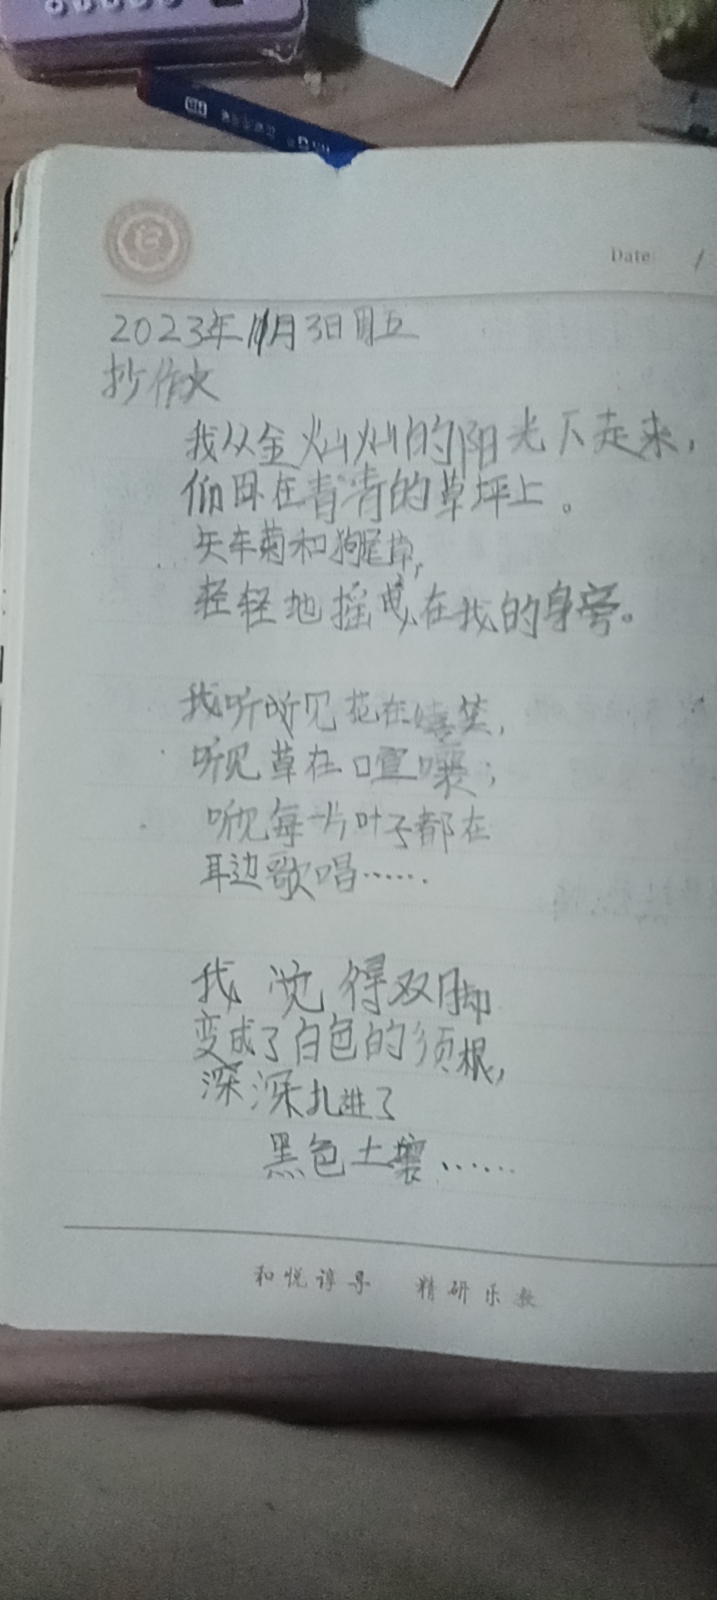 Date: /
2023年11月3日周五
抄作火
我从金灿灿的阳光下走来，
仰卧在青青的草坪上。
矢车菊和狗尾草，
轻轻地摇曳在我的身旁。
我听听见花在嘻笑，
听见草在喧嚷；
听见每一片叶子都在
耳边歌唱……
我觉得双脚
变成了白色的须根，
深深扎进了
黑色土壤……
和悦谆 精研乐教